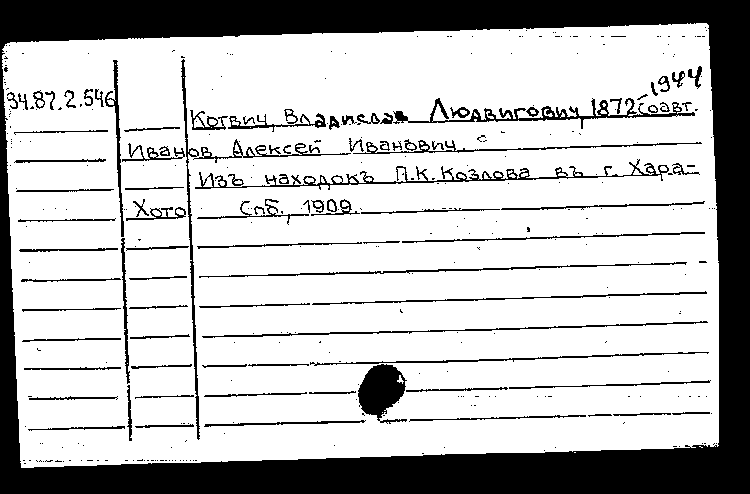 34.87.2.546
Котвич, Владислав Людвигович, 1872-1944
соавт.
Иванов, Алексей Иванович.
Изъ находокъ П.К. Козлова въ г. Хара-
Хото Спб., 1909.